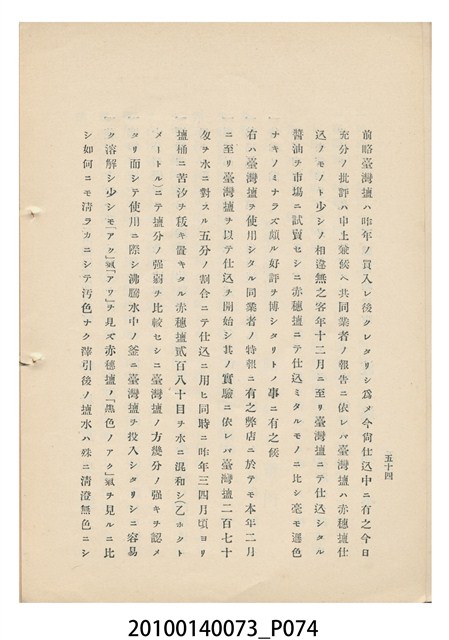 五十四
前略臺灣塩ハ昨年ノ買入レ後クレタリシ爲メ今尙仕込中ニ有之今日
充分ノ批評ハ申上兼候ヘ共同業者ノ報告ニ依レバ臺灣塩ハ赤穗塩仕
込ノモノト少シノ相違無之客年十二月ニ至リ臺灣塩ニテ仕込シタル
醬油ヲ市場ニ試賣セシニ赤穗塩ニテ仕込ミタルモノニ比シ毫モ遜色
ナキノミナラズ頗ル好評ヲ博シタリトノ事ニ有之候
一 右ハ臺灣塩ヲ使用シタル同業者ノ特報ニ有之弊店ニ於テモ本年二月
一 ニ至リ臺灣塩ヲ以テ仕込ヲ開始シ其ノ實驗ニ依レバ臺灣塩二百七十
匁ヲ水ニ對スル五分ノ割合ニテ仕込ニ用ヒ同時ニ昨年三四月頃ヨリ
塩桶ニ苦汐ヲ 置キタル赤穗塩貳百八十目ヲ水ニ混和シ(乙ホクト
一 メートル)ニテ塩分ノ强弱ヲ比較セシニ臺灣塩ノ方幾分ノ强キヲ認メ
タリ而シテ使用ニ際シ沸騰水中ノ釜ニ臺灣塩ヲ投入シタリシニ容易
一 ク溶解シ少シモ「アク」氣「アワ」ヲ見ズ赤穗塩ノ「黑色ノアク」氣ヲ見ルニ比
シ如何ニモ淸ラカニシテ汚色ナク滓引後ノ塩水ハ殊ニ淸澄無色ニシ
20100140073_P074